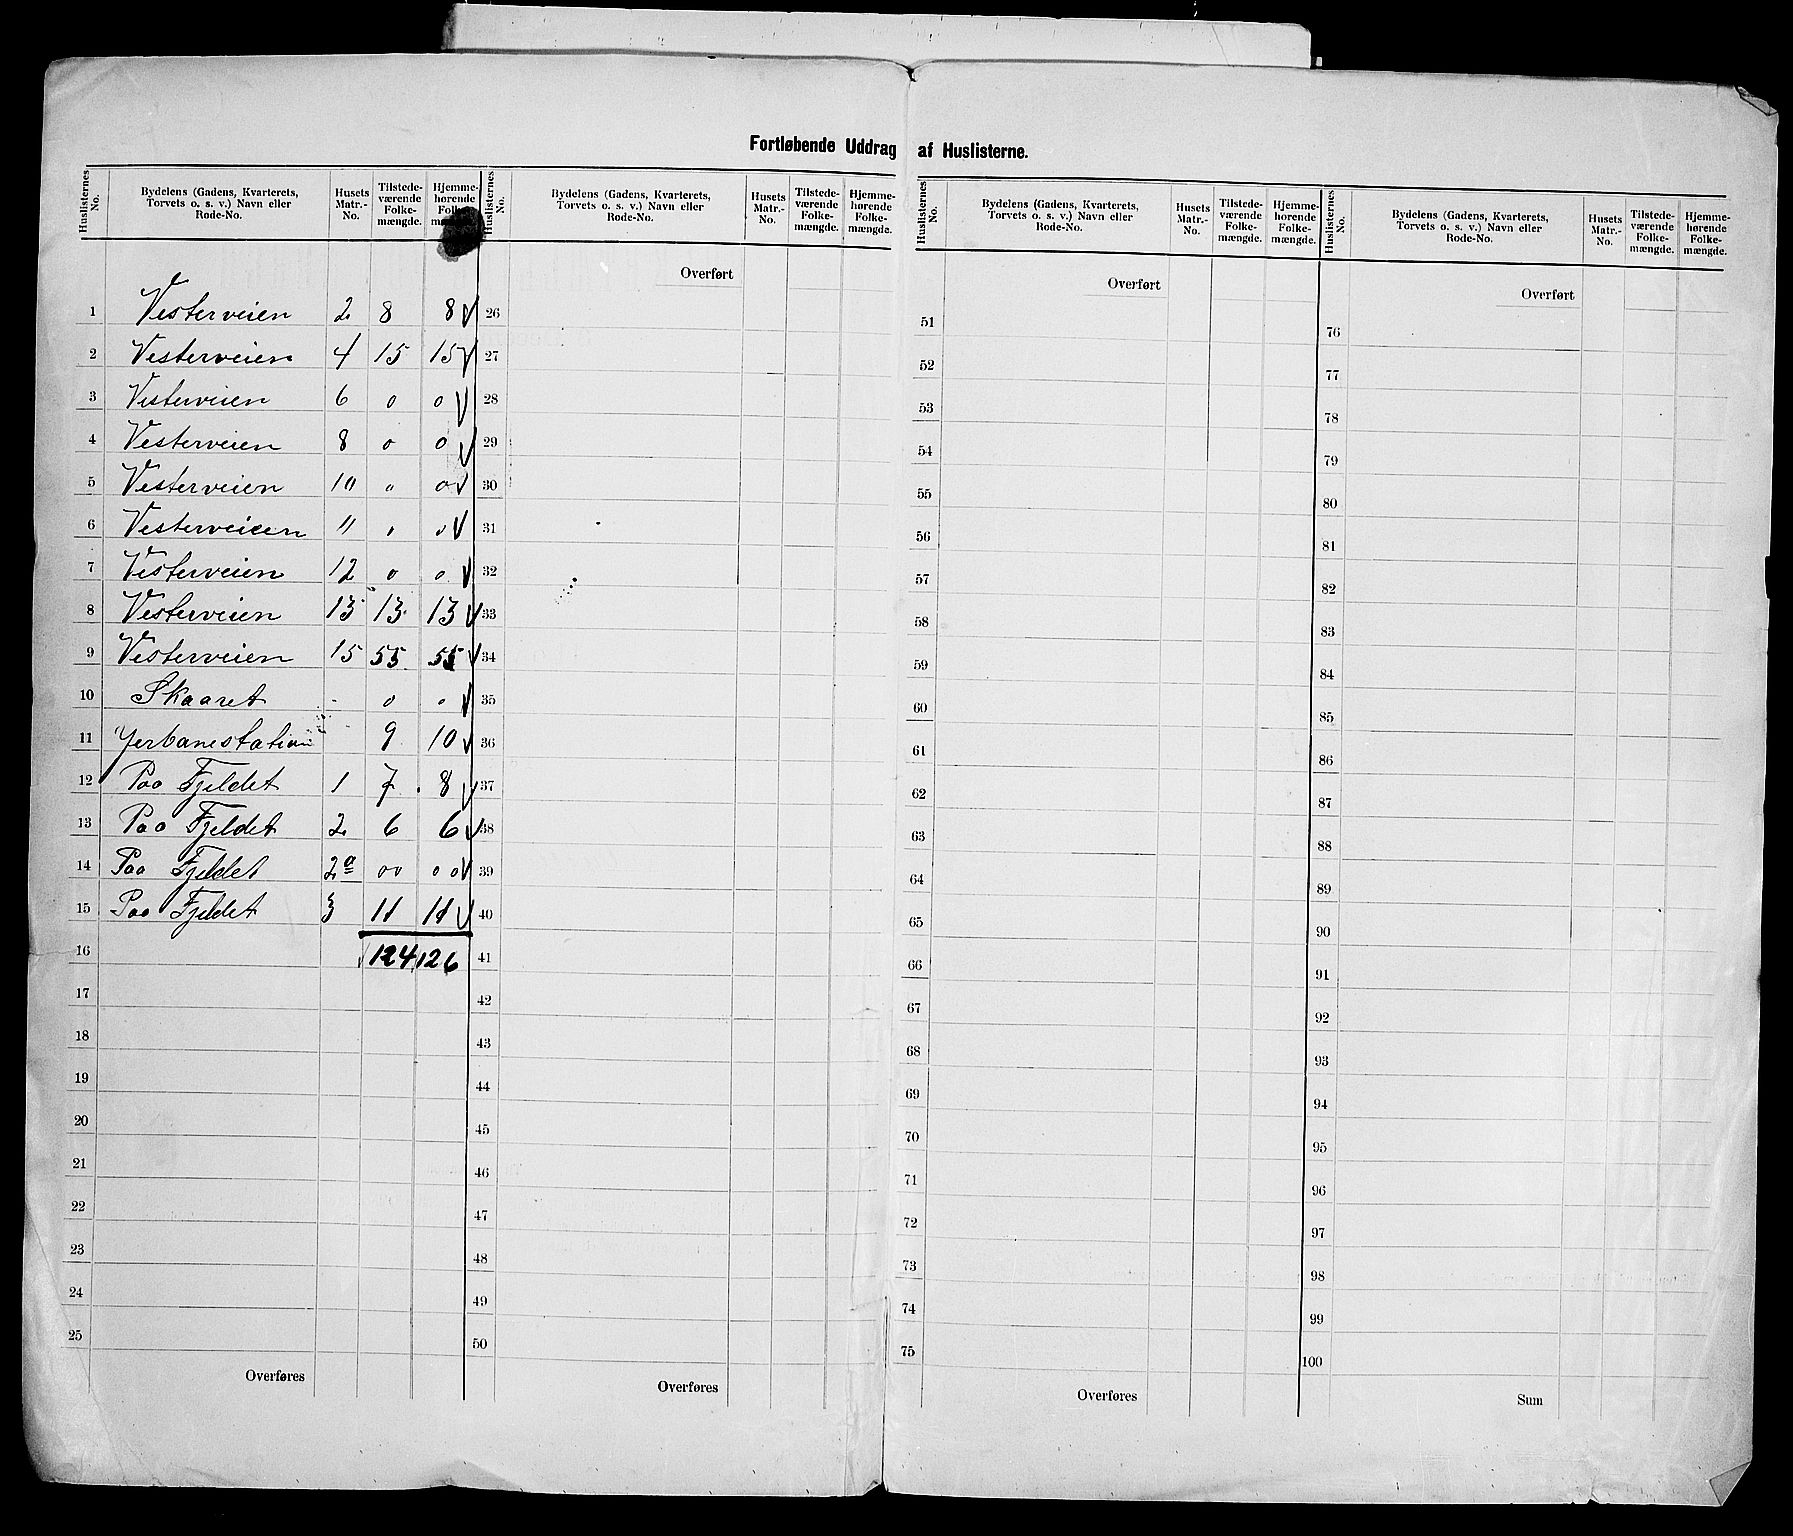 Fortløbende Uddrag af Huslisterne.
Huslisternes No. | Bydelens (Gadens, Kvarterets, Torvets o. s. v.) Navn eller Rode-No. | Husets Matr.-No. | Tilstede-værende Folke-mængde. | Hjemme-hørende Folke-mængde.
Huslisternes No. | Bydelens (Gadens, Kvarterets, Torvets o. s. v.) Navn eller Rode-No. | Husets Matr.-No. | Tilstede-værende Folke-mængde. | Hjemme-hørende Folke-mængde.
Huslisternes No. | Bydelens (Gadens, Kvarterets, Torvets o. s. v.) Navn eller Rode-No. | Husets Matr.-No. | Tilstede-værende Folke-mængde. | Hjemme-hørende Folke-mængde.
Huslisternes No. | Bydelens (Gadens, Kvarterets, Torvets o. s. v.) Navn eller Rode-No. | Husets Matr.-No. | Tilstede-værende Folke-mængde. | Hjemme-hørende Folke-mængde.
1 Vesterveien 2 8 8
2 Vesterveien 4 15 15
3 Vesterveien 6 0 0
4 Vesterveien 8 0 0
5 Vesterveien 10 0 0
6 Vesterveien 11 0 0
7 Vesterveien 12 0 0
8 Vesterveien 13 13 13
9 Vesterveien 15 55 55
10 Skaaret - 0 0
11 Jerbanestation - 9 10
12 Paa Fjeldet 1 7 8
13 Paa Fjeldet 2 6 6
14 Paa Fjeldet 2a 00 00
15 Paa Fjeldet 3 11 11
16 124 126
17
18
19
20
21
22
23
24
25
Overføres
Overført
26
27
28
29
30
31
32
33
34
35
36
37
38
39
40
41
42
43
44
45
46
47
48
49
50
Overføres
Overført
51
52
53
54
55
56
57
58
59
60
61
62
63
64
65
66
67
68
69
70
71
72
73
74
75
Overføres
Overført
76
77
78
79
80
81
82
83
84
85
86
87
88
89
90
91
92
93
94
95
96
97
98
99
100
Sum